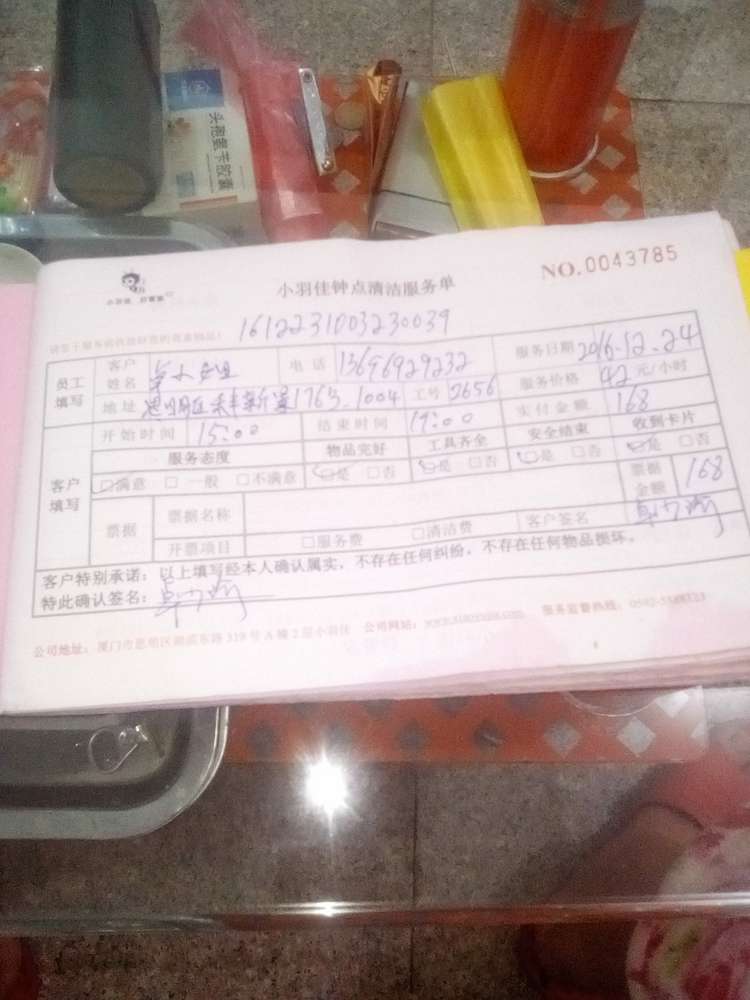 头孢氨苄胶囊
小羽佳 好管家
小羽佳钟点清洁服务单
NO.0043785
1612231003230039
员工填写 客户姓名 电话 13696929232 服务日期 2016.12.24
地址 1763-1004 工号 2656 服务价格 42 元/小时
开始时间 15:00 结束时间 19:00 实付金额 168
客户填写 服务态度 物品完好 工具齐全 安全结束 收到卡片
□满意 □一般 □不满意 □是 □否 □是 □否 □是 □否 □是 □否
票据 票据名称 票据金额 168
开票项目 □服务费 □清洁费 客户签名
客户特别承诺：以上填写经本人确认属实，不存在任何纠纷，不存在任何物品损坏。
特此确认签名：
公司地址：厦门市思明区湖滨东路319号A幢2层小羽佳 公司网站： 服务监督热线：